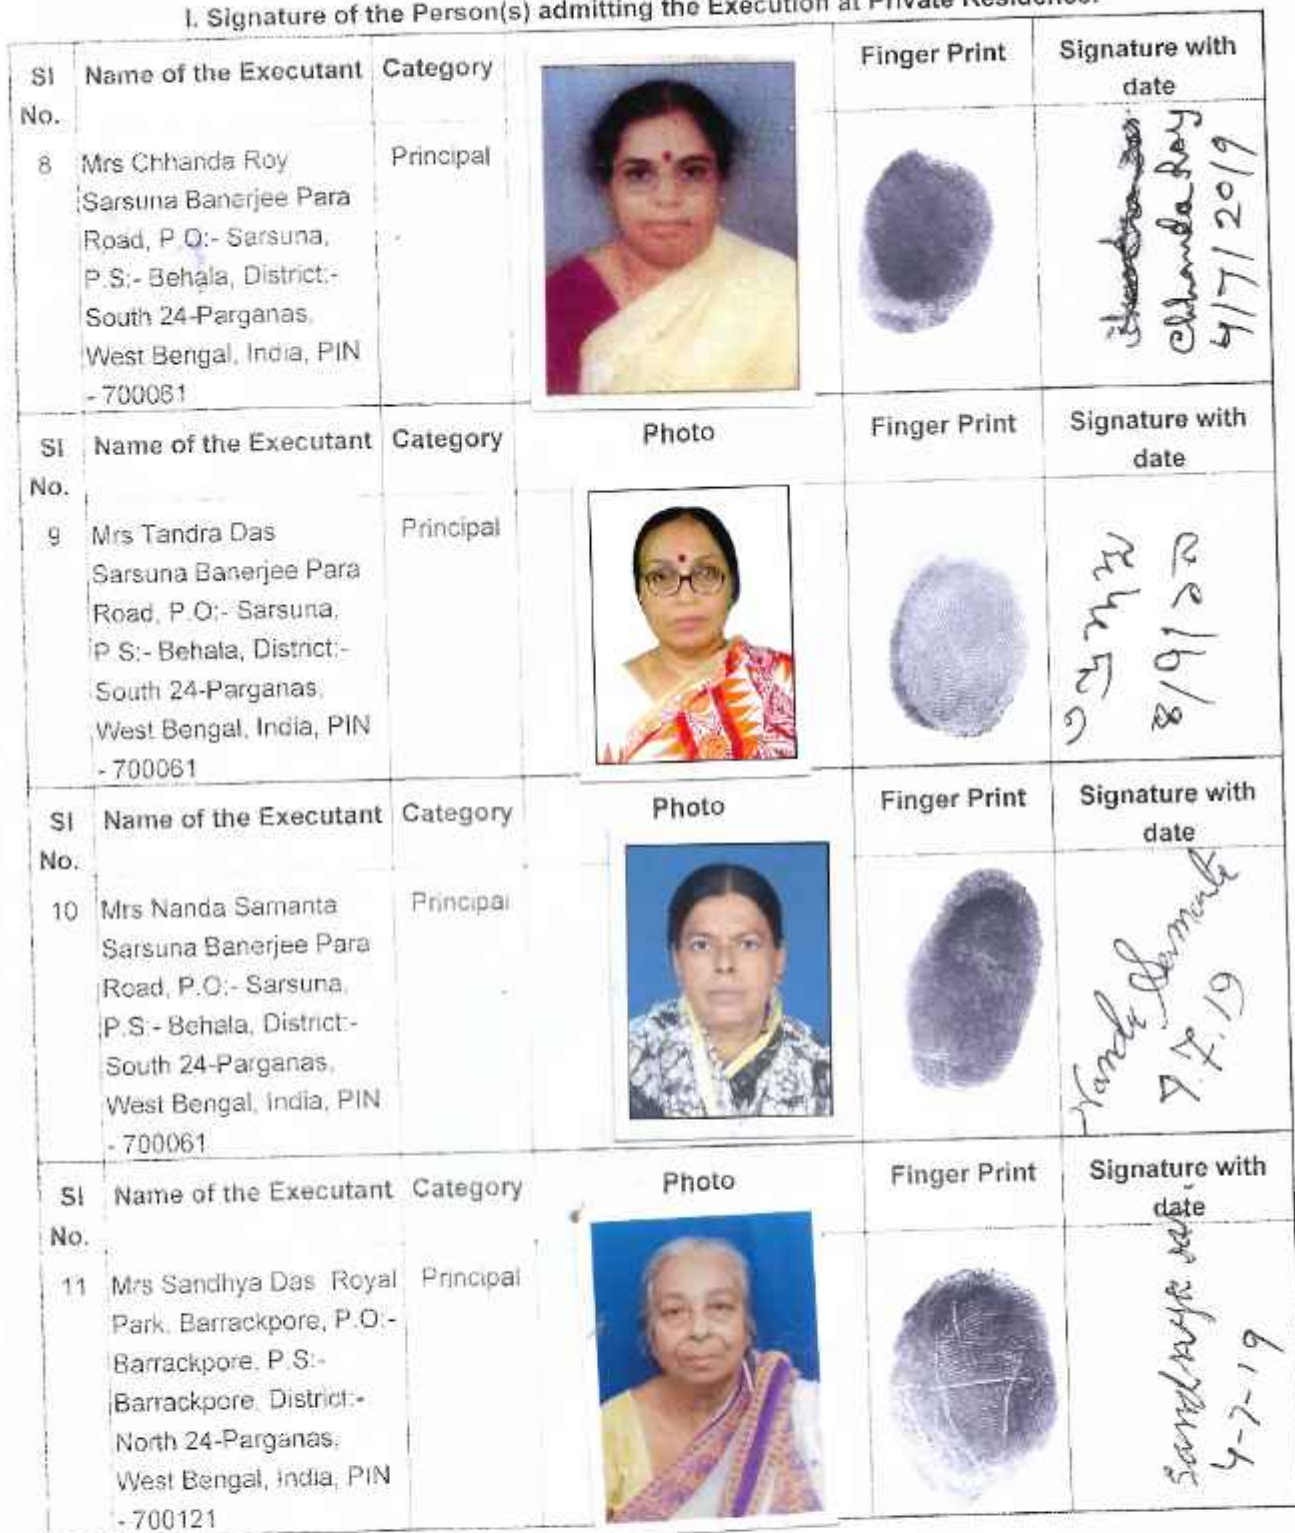 I. Signature of the Person(s) admitting the Execution at Private Residence.
Sl No. Name of the Executant Category Finger Print Signature with date
8 Mrs Chhanda Roy Principal
Sarsuna Banerjee Para
Road, P.O:- Sarsuna,
P.S:- Behala, District:-
South 24-Parganas,
West Bengal, India, PIN
- 700061
Chhanda Roy
4/7/2019
Sl No. Name of the Executant Category Photo Finger Print Signature with date
9 Mrs Tandra Das Principal
Sarsuna Banerjee Para
Road, P.O:- Sarsuna,
P.S:- Behala, District:-
South 24-Parganas,
West Bengal, India, PIN
- 700061
৪/৭/১৯
Sl No. Name of the Executant Category Photo Finger Print Signature with date
10 Mrs Nanda Samanta Principal
Sarsuna Banerjee Para
Road, P.O:- Sarsuna,
P.S:- Behala, District:-
South 24-Parganas,
West Bengal, India, PIN
- 700061
Nanda Samanta
4.7.19
Sl No. Name of the Executant Category Photo Finger Print Signature with date
11 Mrs Sandhya Das Royal Principal
Park, Barrackpore, P.O:-
Barrackpore, P.S:-
Barrackpore, District:-
North 24-Parganas,
West Bengal, India, PIN
- 700121
Sandhya das
4-7-19